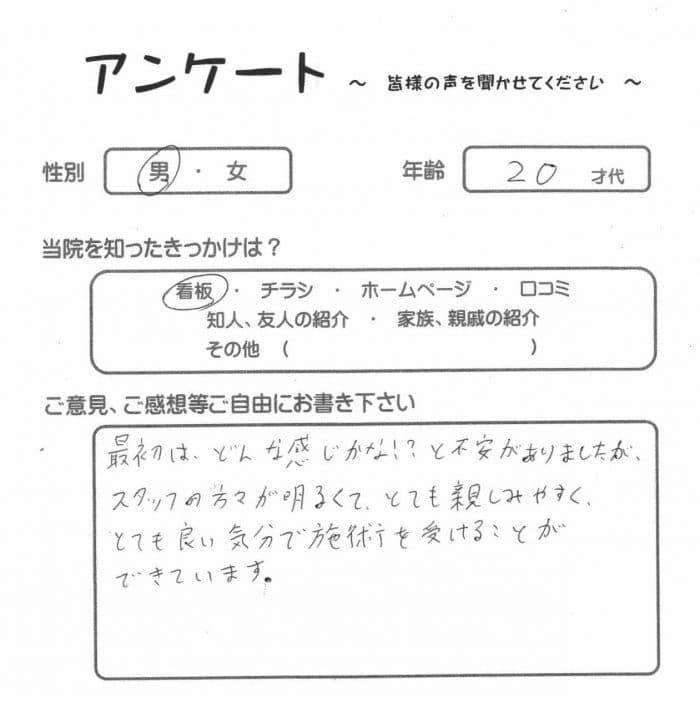 アンケート ～ 皆様の声を聞かせてください ～
性別 男 ・ 女 年齢 20 才代
当院を知ったきっかけは？
看板 ・ チラシ ・ ホームページ ・ 口コミ
知人、友人の紹介 ・ 家族、親戚の紹介
その他 （ ）
ご意見、ご感想等ご自由にお書き下さい
最初は、どんな感じかな!?と不安がありましたが、
スタッフの方々が明るくて、とても親しみやすく、
とても良い気分で施術を受けることが
できています。